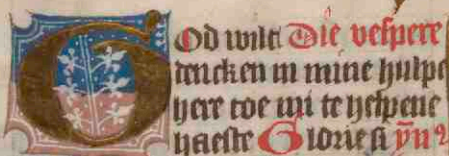 God wilt Die vespere
dencken in mine hulpe
here toe mi te helpene
haeste Glorie si yn